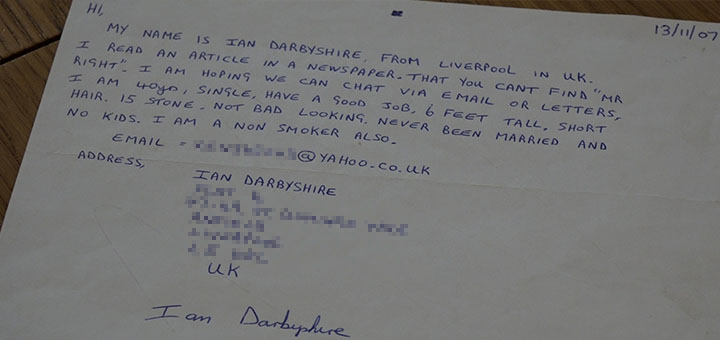 HI,
13/11/07
MY NAME IS IAN DARBYSHIRE, FROM LIVERPOOL IN UK.
I READ AN ARTICLE IN A NEWSPAPER. THAT YOU CANT FIND "MR
RIGHT". I AM HOPING WE CAN CHAT VIA EMAIL OR LETTERS,
I AM 40yo, SINGLE, HAVE A GOOD JOB, 6 FEET TALL, SHORT
HAIR. 15 STONE. NOT BAD LOOKING. NEVER BEEN MARRIED AND
NO KIDS. I AM A NON SMOKER ALSO.
EMAIL = @YAHOO.CO.UK
ADDRESS,
IAN DARBYSHIRE
UK
Ian Darbyshire